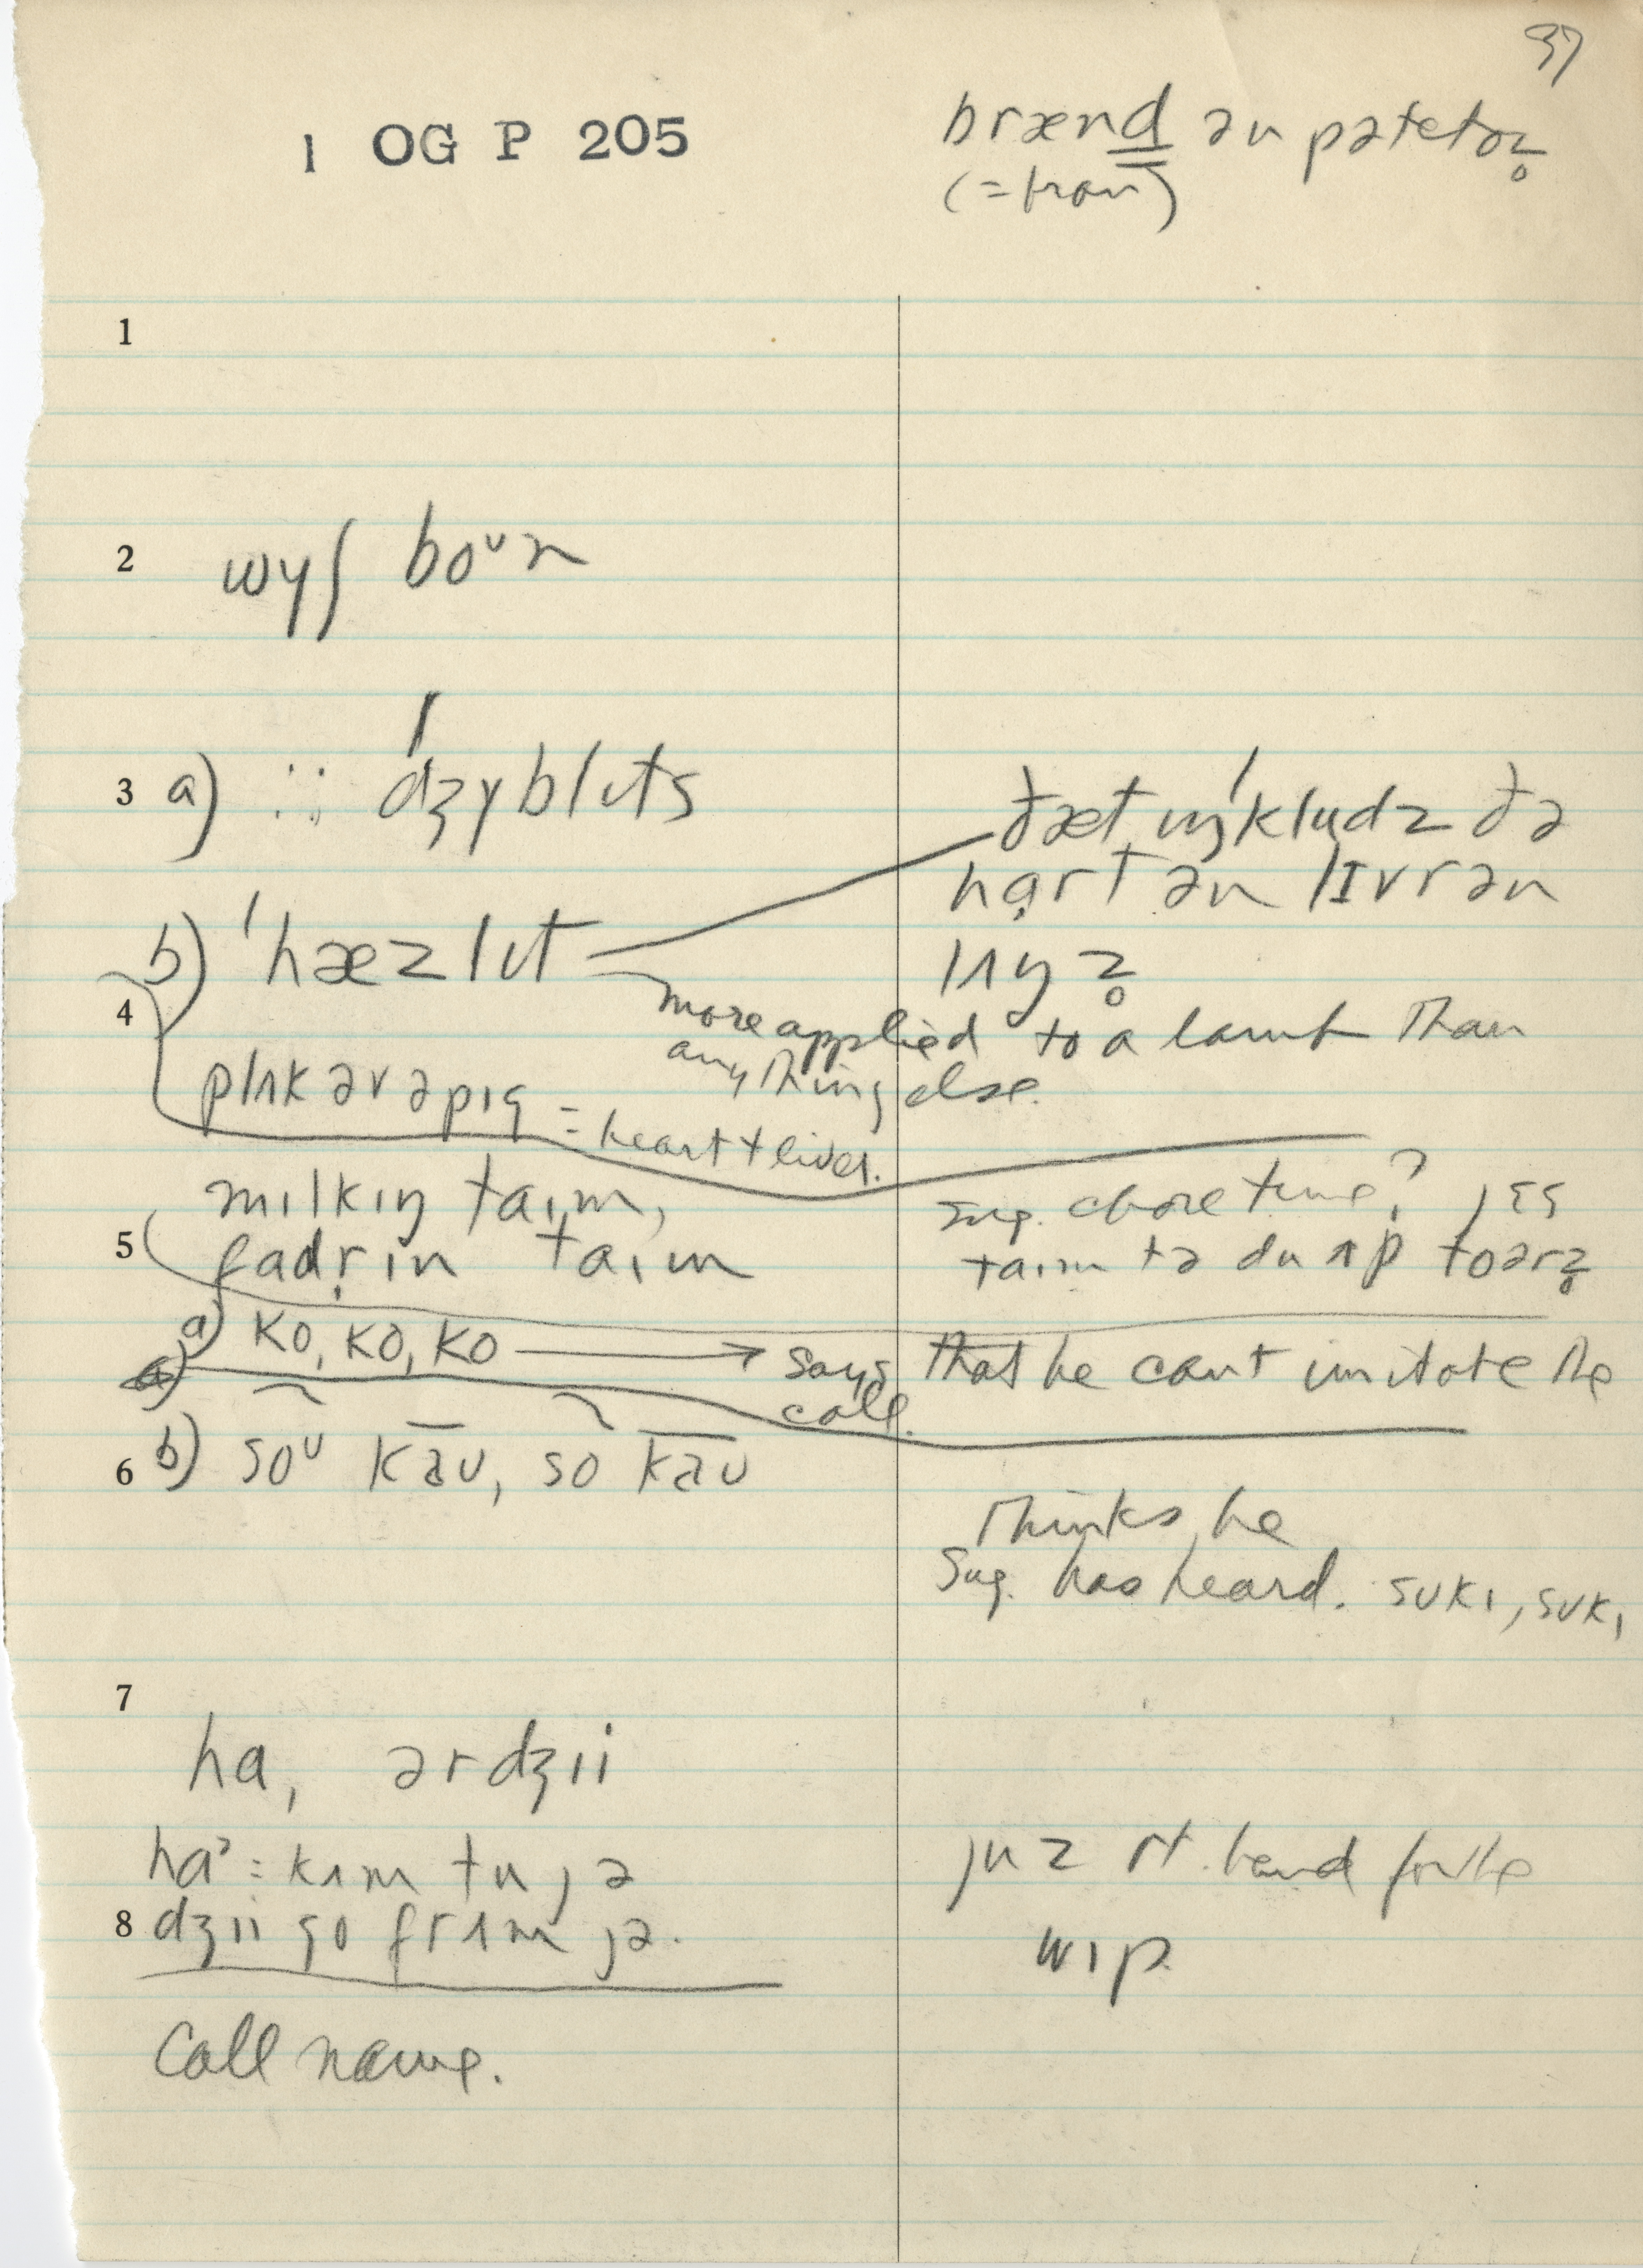 37
1 OG P 205
brænd ən pətetoz̥
(= bran)
1
2 wɪʃ boᵘn
3 a) ∴ ˈdʒɪblɪts
ðæt ɪŋˈkludz ðə
hɑrt ən lɪvr ən
lʌŋz̥
b) ˈhæzlɪt
more applied to a lamb than
anything else.
4
plʌk əv ə pɪg = heart + liver.
milkɪŋ taɪm,
5 fadr̩ɪn taɪm
sug. chore time? jɛs
taɪm tə du ʌp tʃoərz̥
a) ko, ko, ko → says that he can't imitate the
call.
6 b) soᵘ kaᴜ, so kaᴜ
Thinks he
Sug. has heard. sᴜkɪ, sᴜkɪ
7
ha, ərdʒii
ha = kʌm tu jə
8 dʒii go frʌm jə.
juz rt. hand for the
wɪp
Call name.